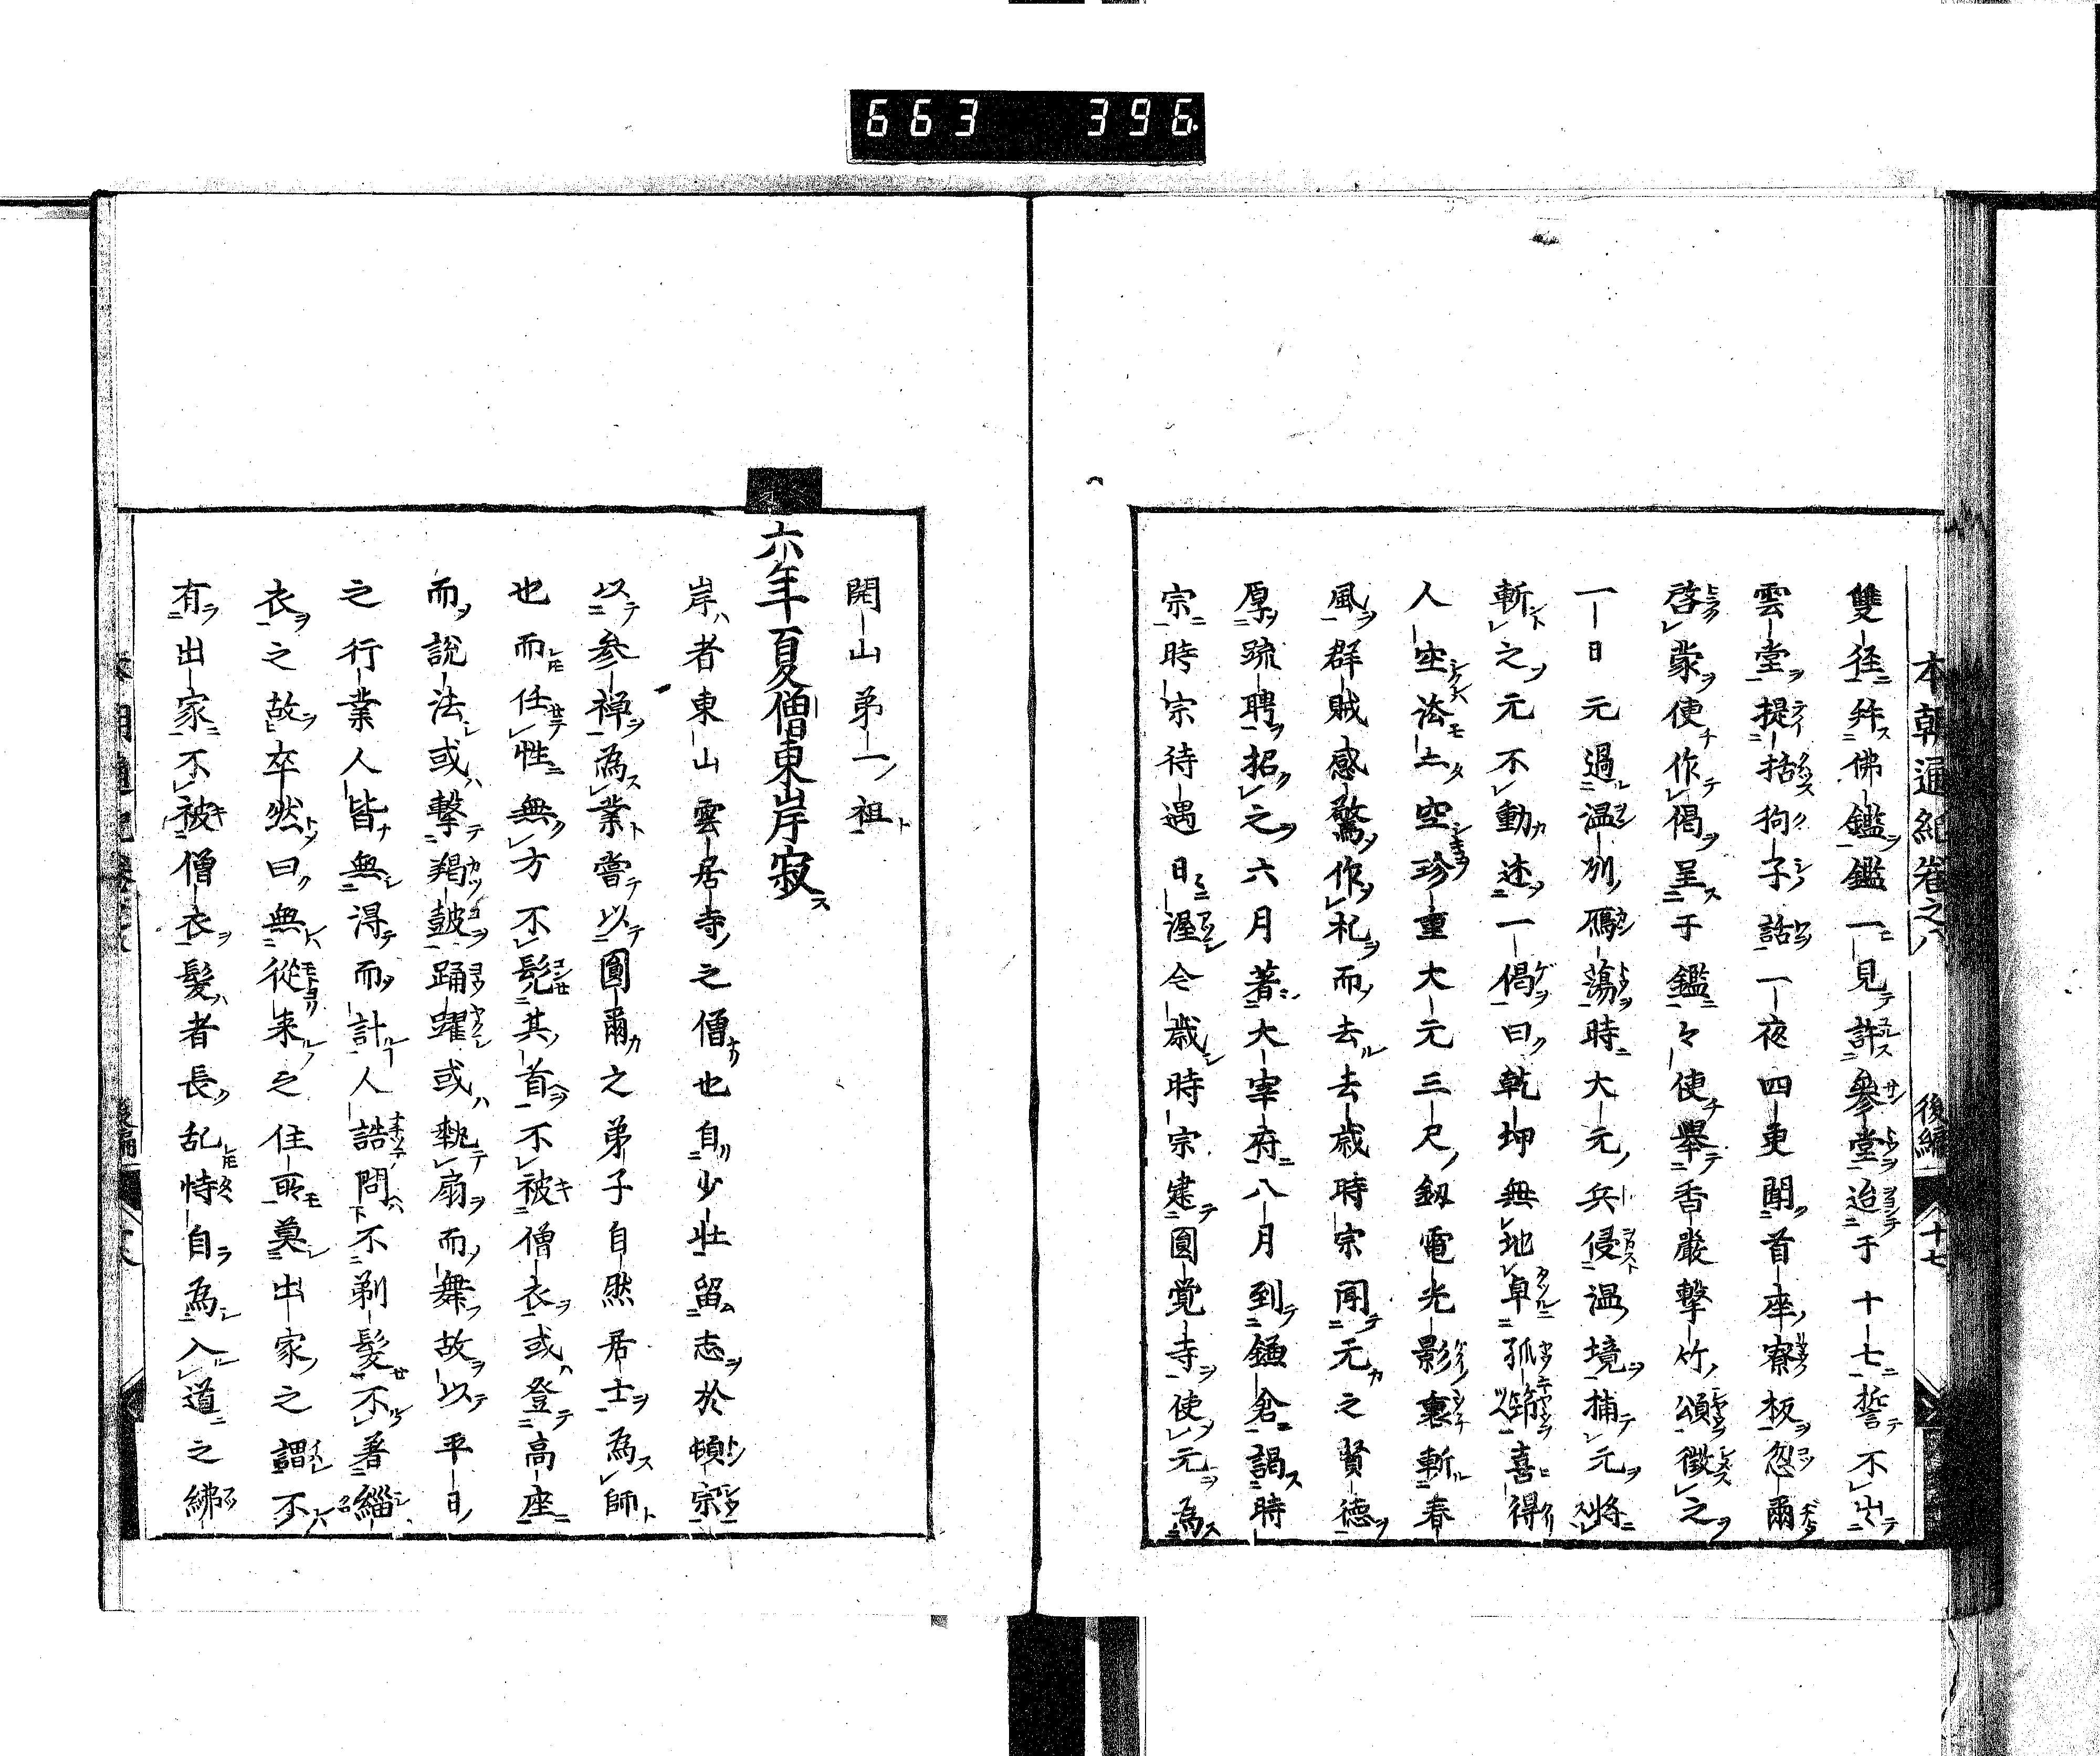 663 396
本朝通紀卷之八 後編 十七
雙径𠦑佛鑑鑑一見許參堂迨于十七誓不出
雲堂提括狗子話一夜四更聞首座寮板忽爾
啓蒙使作偈呈于鑑々使舉香嚴撃竹頌徵之
一日元過温別鴈蕩時大元兵侵温境捕元將
斬之元不動述一偈曰乾坤無地卓孤筇喜得
人空法土空珍重大元三尺釼電光影裏斬春
風群賊感驚作礼而去去歳時宗聞元之賢德
厚疏聘招之六月著大宰府八月到鎌倉謁時
宗時宗待遇日渥今歳時宗建圓覚寺使元為
開山弟一祖
六年夏僧東岸寂
岸者東山雲居寺之僧也自少壮留志於頓宗
以参禅為業嘗以圓爾之弟子自然居士為師
也而任性無方不髡其首不被僧衣或登高座
而説法或撃羯鼓踊躍或執扇而舞故以平日
之行業人皆無淂而計人詰問不剃髪不著緇
衣之故卒然曰無從来之住所莫出家之謂不
有出家不被僧衣髪者長乱恃自為入道之紼